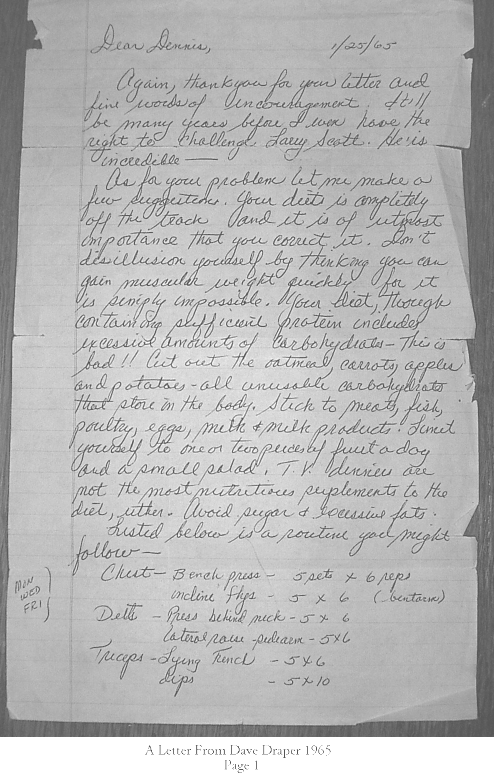 Dear Dennis,
1/25/65
Again, thank you for your letter and
fine words of encouragement. It'll
be many years before I even have the
right to challenge Larry Scott. He is
incredible —
As for your problem let me make a
few suggestions. Your diet is completely
off the track and it is of utmost
importance that you correct it. Don't
desillusion yourself by thinking you can
gain muscular weight quickly for it
is simply impossible. Your diet, though
containing sufficient protein includes
excessive amounts of carbohydrates - This is
bad!! Cut out the oatmeal, carrots, apples
and potatoes - all unusable carbohydrate
that store in the body. Stick to meats, fish,
poultry, eggs, milk & milk products. Limit
yourself to one or two pieces of fruit a day
and a small salad. T.V. dinners are
not the most nutritious suplements to the
diet, either. Avoid sugar & excessive fats.
Listed below is a routine you might
follow —
MON
WED
FRI
Chest - Bench press - 5 sets x 6 reps
incline flys - 5 x 6 (bentarm)
Delts - Press behind neck - 5 x 6
lateral raise - - 5x6
Triceps - Lying French - 5x6
dips - 5x10
A Letter From Dave Draper 1965
Page 1